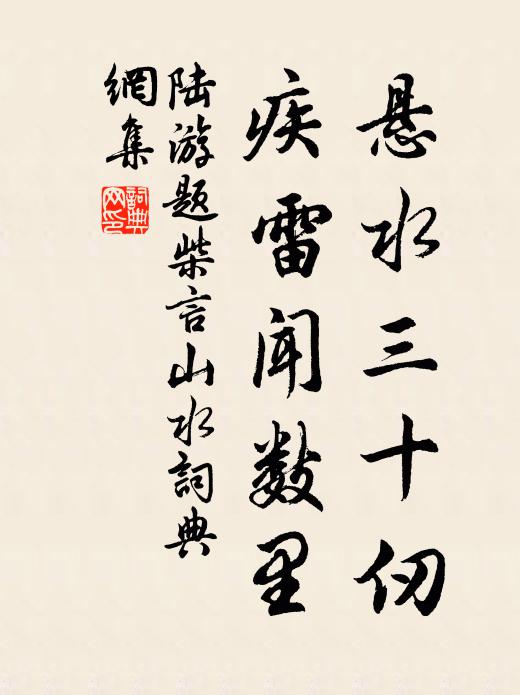 悬水三十仞
疾雷闻数里
陆游题柴言山水詞典
網集
詞典
网印